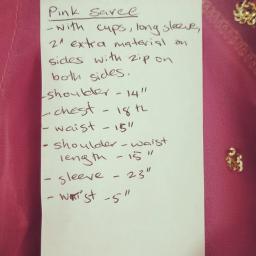 Pink Saree
- with cups, long sleeve,
2" extra material on
sides with zip on
both sides.
- shoulder - 14"
- chest - 18 1/2
- waist - 15"
- shoulder - waist
length - 15"
- sleeve - 23"
- wrist - 5"